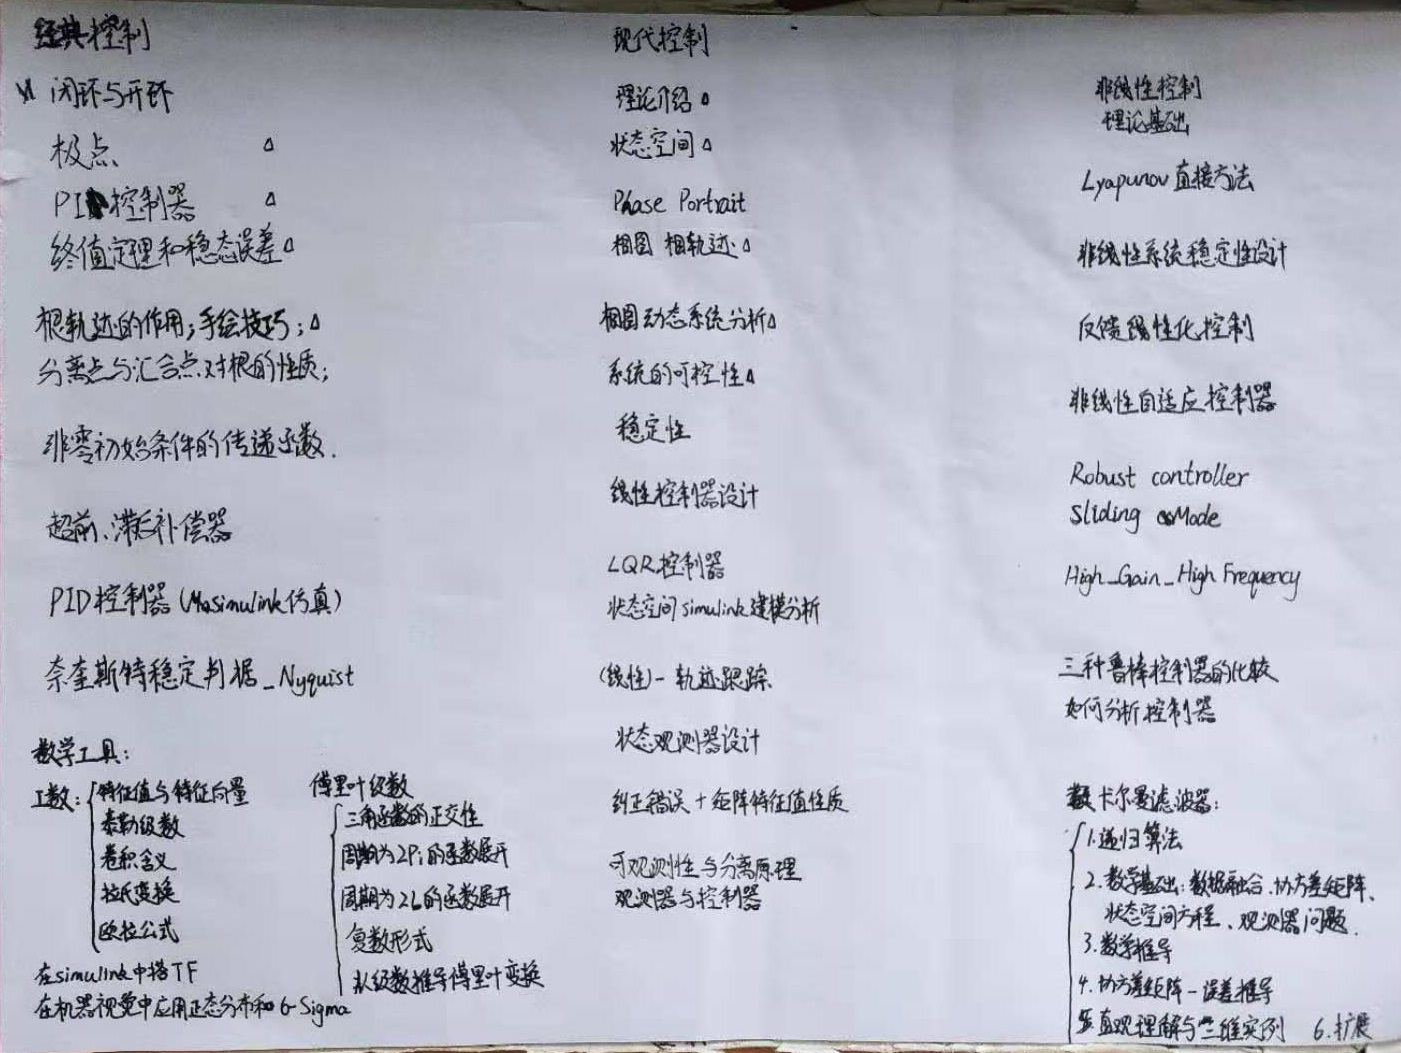 经典控制
闭环与开环
极点 Δ
PI控制器 Δ
终值定理和稳态误差Δ
根轨迹的作用;手绘技巧;Δ
分离点与汇合点对根的性质;
非零初始条件的传递函数.
超前、滞后补偿器
PID控制器(Simulink仿真)
奈奎斯特稳定判据_Nyquist
数学工具:
工数:
特征值与特征向量
泰勒级数
卷积含义
拉氏变换
欧拉公式
傅里叶级数
三角函数的正交性
周期为2Pi的函数展开
周期为2L的函数展开
复数形式
从级数推导傅里叶变换
在simulink中搭TF
在机器视觉中应用正态分布和6-Sigma
现代控制
理论介绍Δ
状态空间Δ
Phase Portrait
相图 相轨迹Δ
相图动态系统分析Δ
系统的可控性Δ
稳定性
线性控制器设计
LQR控制器
状态空间simulink建模分析
(线性)-轨迹跟踪
状态观测器设计
纠正错误+矩阵特征值性质
可观测性与分离原理
观测器与控制器
非线性控制
理论基础
Lyapunov直接方法
非线性系统稳定性设计
反馈线性化控制
非线性自适应控制器
Robust controller
Sliding Mode
High_Gain_High Frequency
三种鲁棒控制器的比较
如何分析控制器
卡尔曼滤波器:
1.递归算法
2.数学基础:数据融合、协方差矩阵、
状态空间方程、观测器问题.
3.数学推导
4.协方差矩阵-误差推导
5.直观理解与二维实例 6.扩展